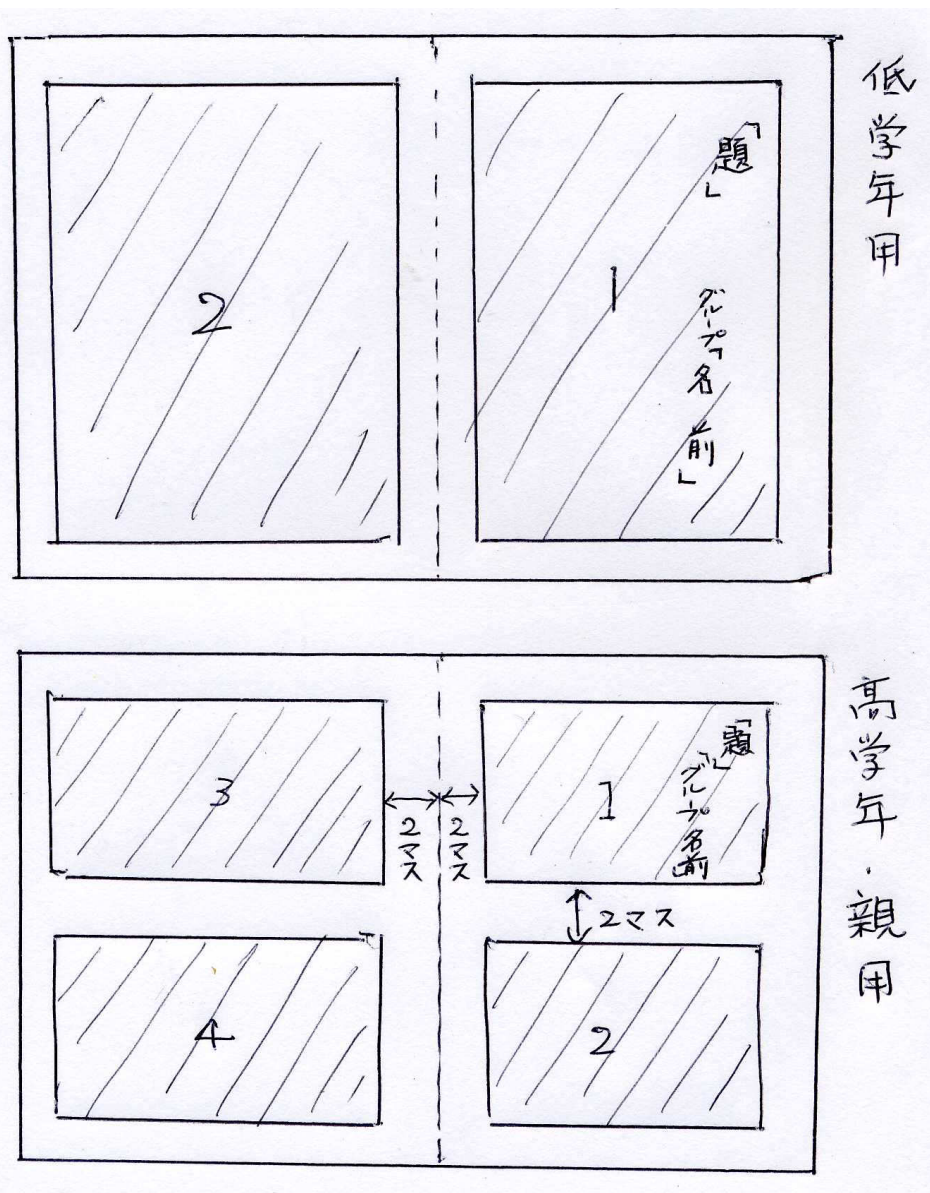 低学年用
1
「題」
グループ名
前」
2
高学年・親用
1
「題」
「グループ名前」
2マス
2マス
2マス
2
3
4